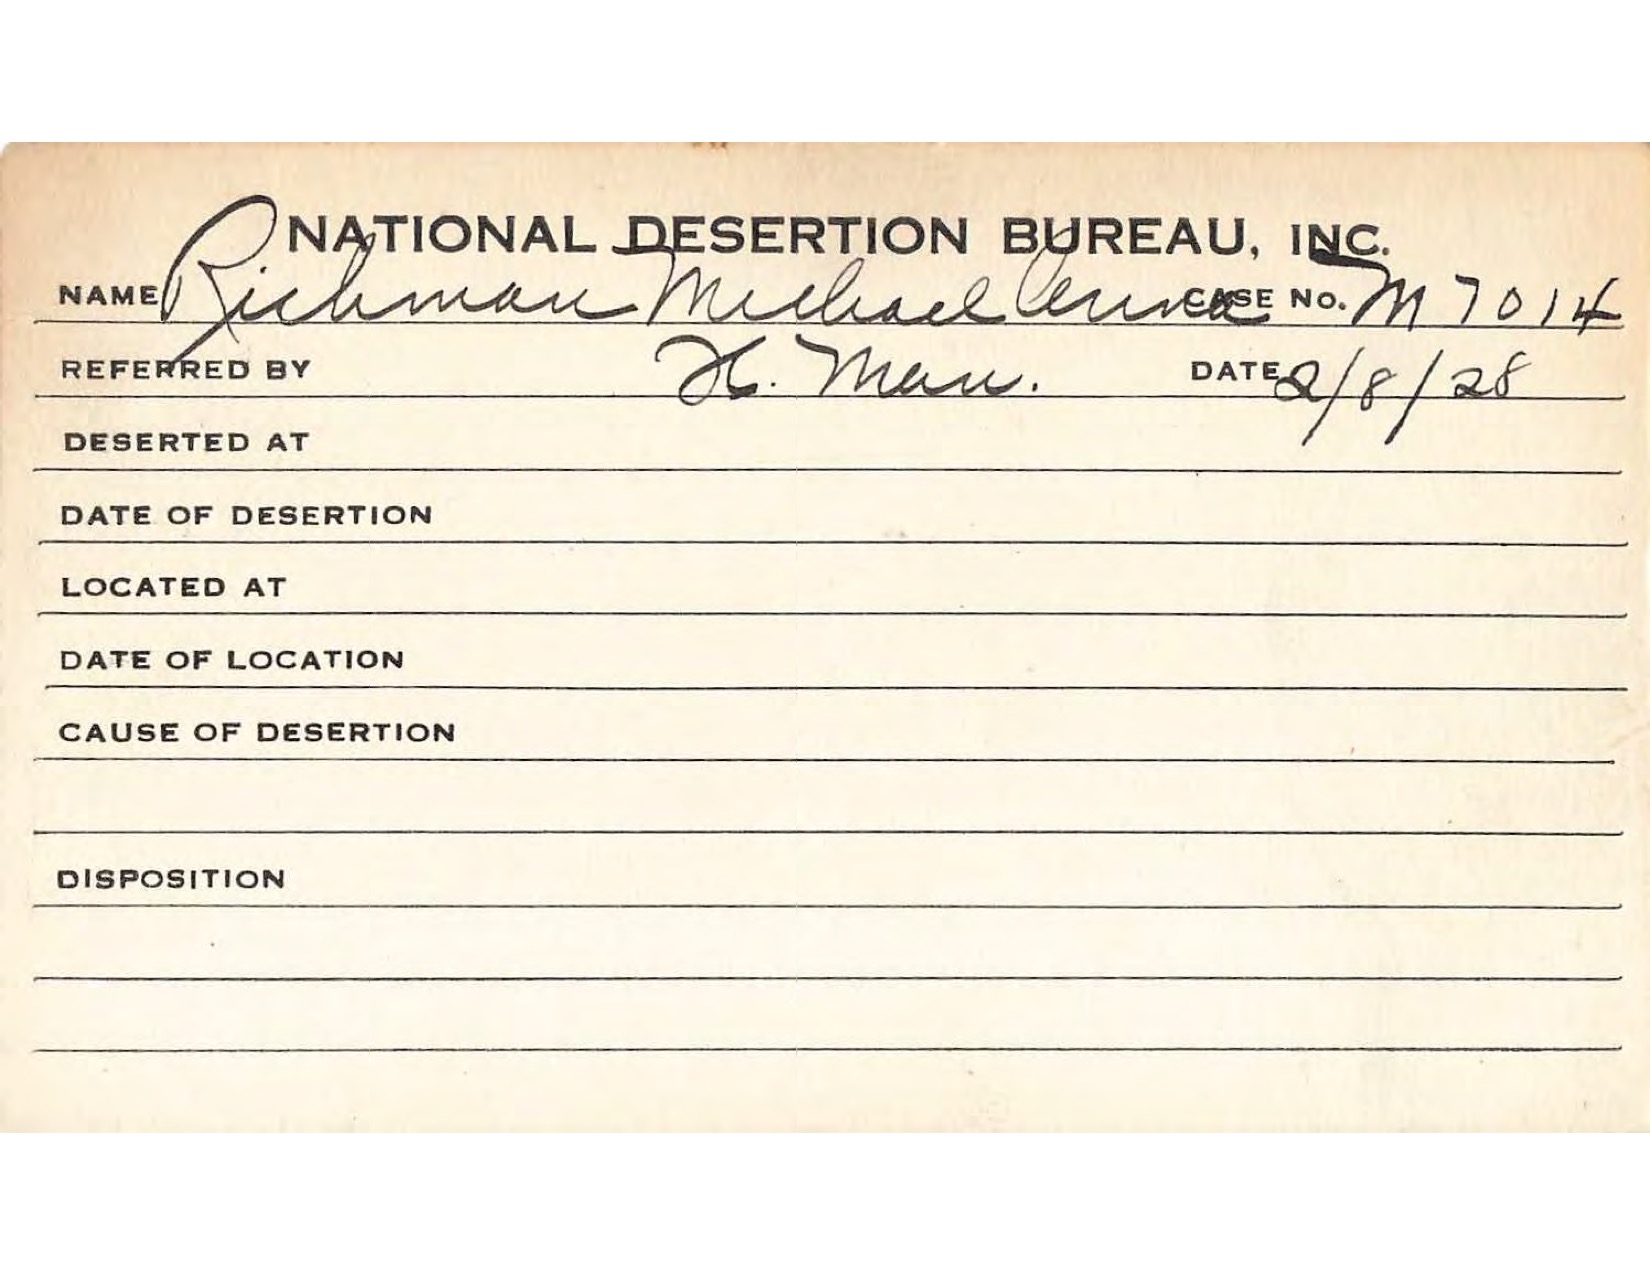 NATIONAL DESERTION BUREAU, INC.
NAME Richman Michael Anna CASE NO. M7014
REFERRED BY H. Man. DATE 2/8/28
DESERTED AT
DATE OF DESERTION
LOCATED AT
DATE OF LOCATION
CAUSE OF DESERTION
DISPOSITION